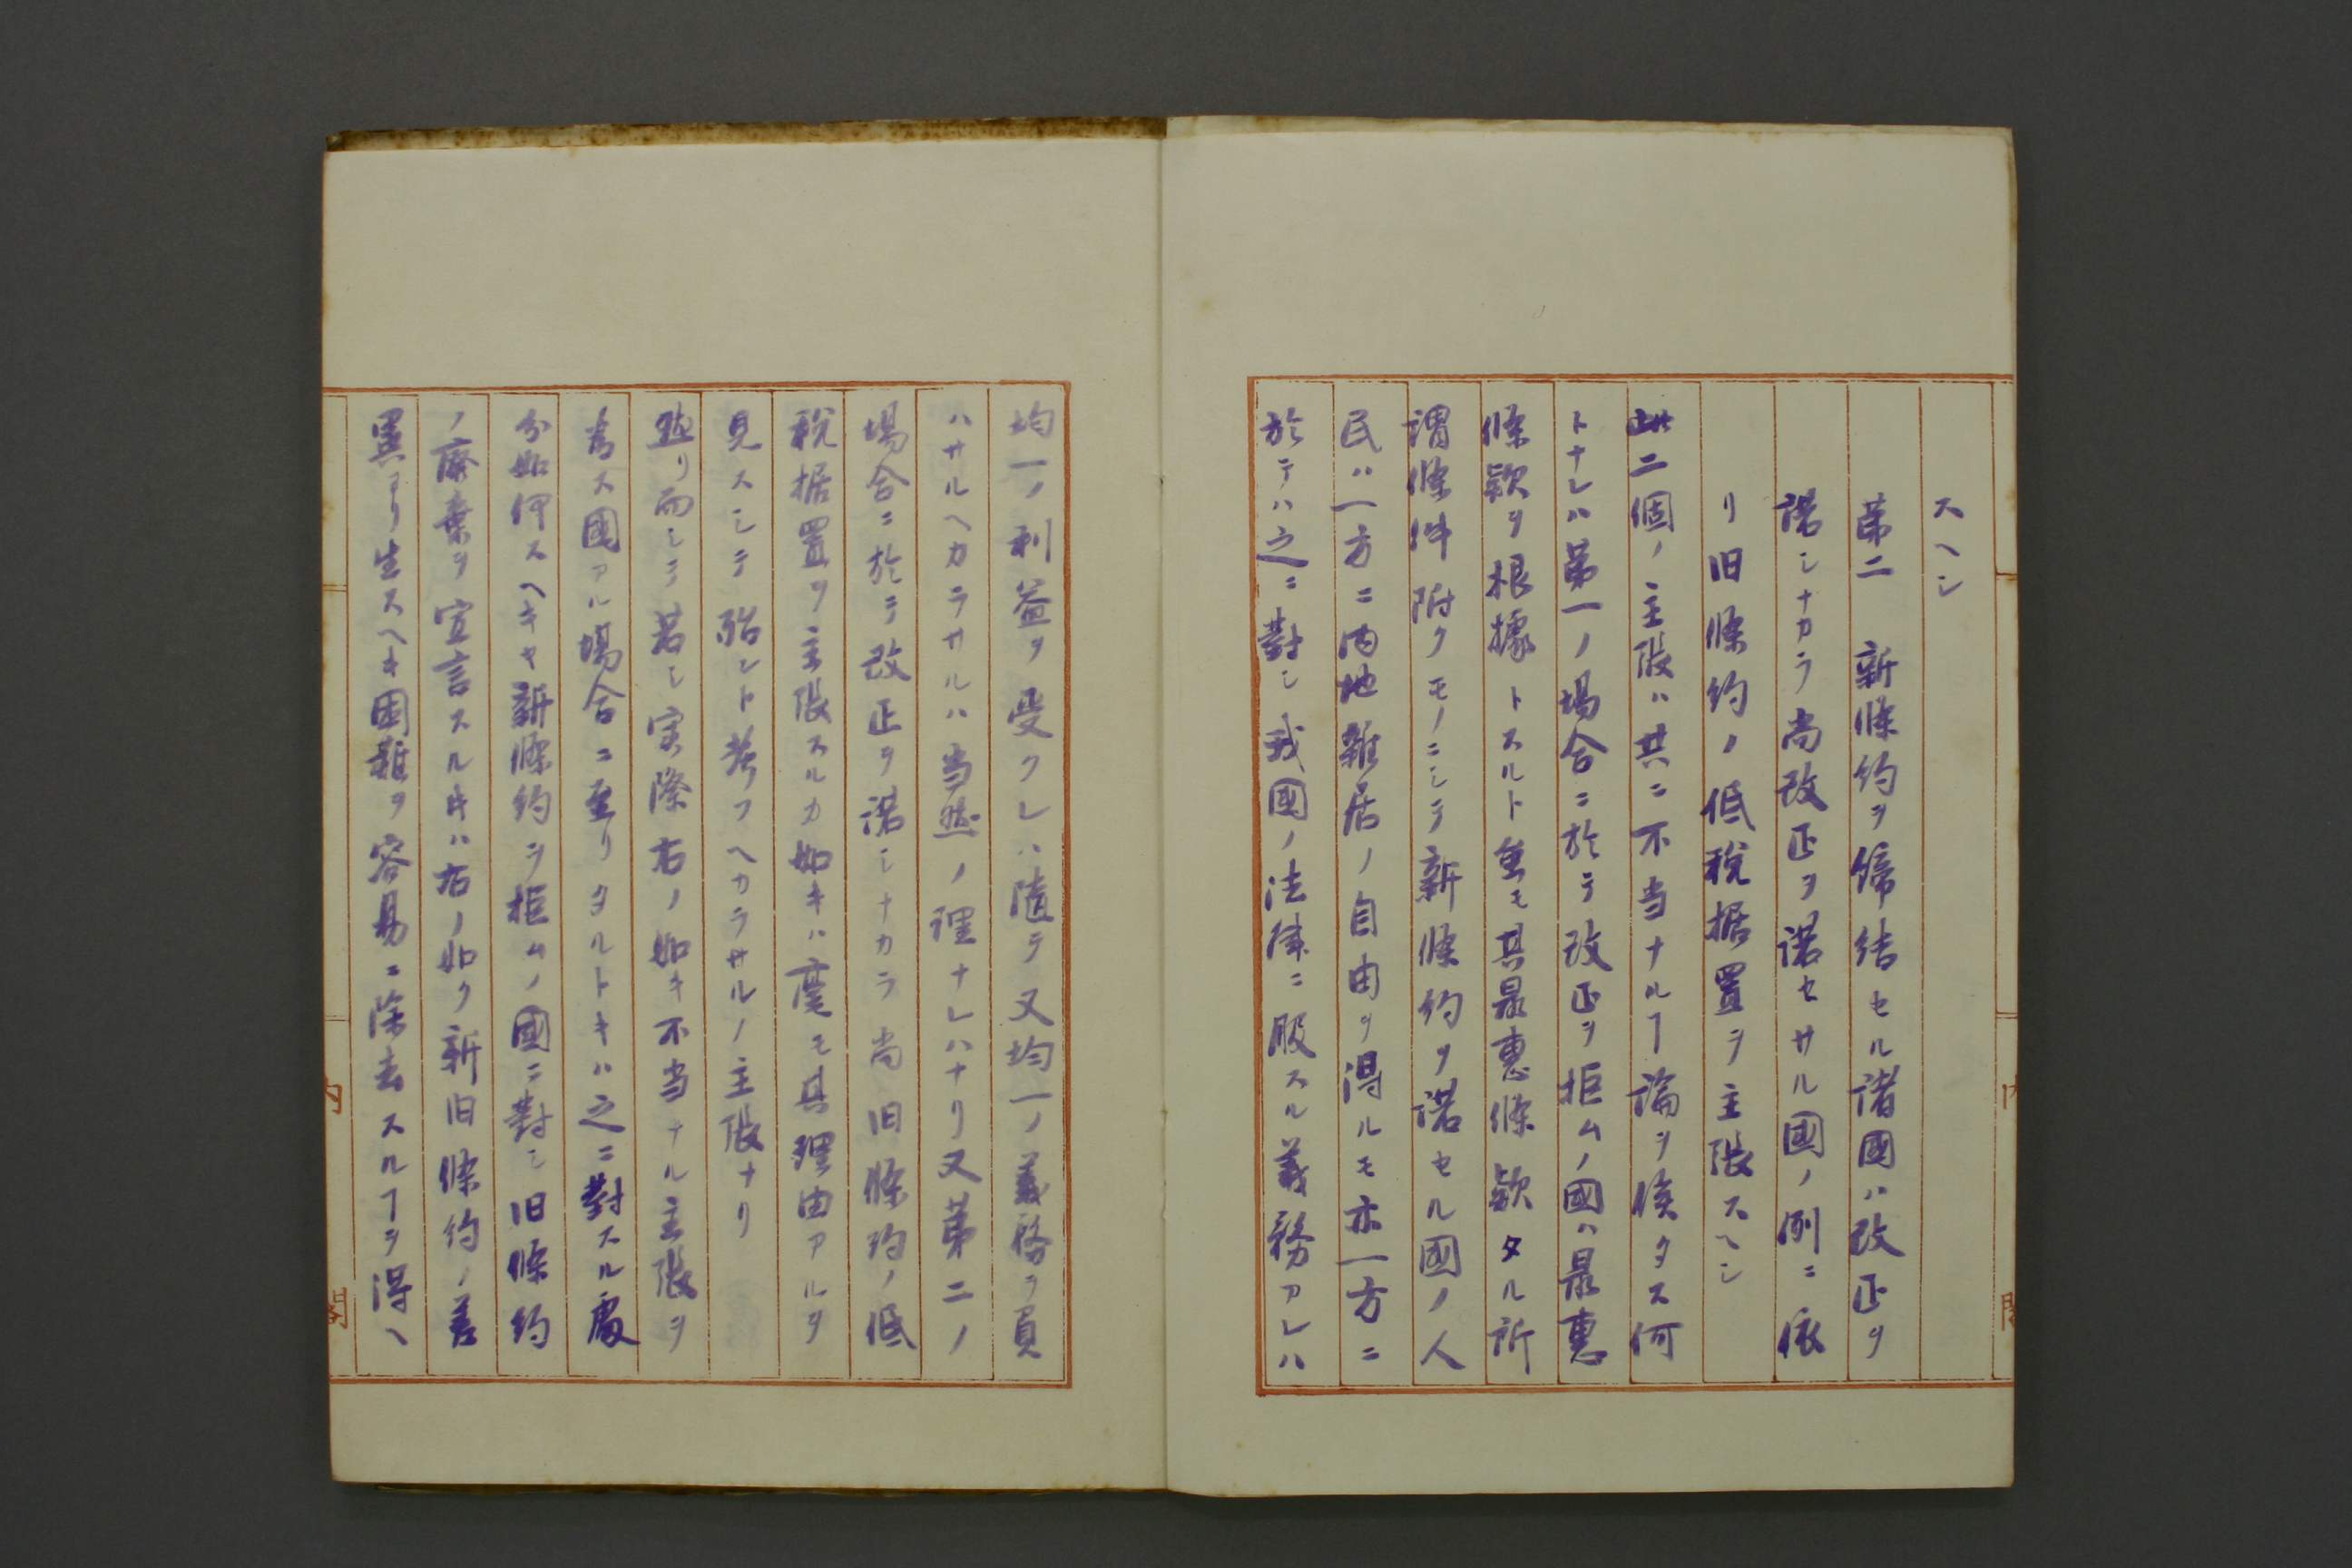 スヘシ
第二　新條約ヲ締結セル諸國ハ改正ヲ
諾シナカラ尚改正ヲ諾セサル國ノ例ニ依
リ旧條約ノ低税据置ヲ主張スヘシ
此二個ノ主張ハ共ニ不当ナルヿ論ヲ俟タス何
トナレハ第一ノ場合ニ於テ改正ヲ拒ムノ國ハ最惠
條欵ヲ根據トスルト虽モ其最惠條欵タル所
謂條件附クモノニシテ新條約ヲ諾セル國ノ人
民ハ一方ニ内地雜居ノ自由ヲ得ルモ亦一方ニ
於テハ之ニ對シ我國ノ法律ニ服スル義務アレハ
均一ノ利益ヲ受クレハ随テ又均一ノ義務ヲ負
ハサルヘカラサルハ当然ノ理ナレハナリ又第二ノ
場合ニ於テ改正ヲ諾シナカラ尚旧條約ノ低
税据置ヲ主張スルカ如キハ毫モ其理由アルヲ
見スシテ殆ント考フヘカラサルノ主張ナリ
然リ而シテ若シ実際右ノ如キ不当ナル主張ヲ
為ス國アル場合ニ至リタルトキハ之ニ對スル處
分如何スヘキヤ新條約ヲ拒ムノ國ニ對シ旧條約
ノ廢棄ヲ宣言スルキハ右ノ如ク新旧條約ノ差
異ヨリ生スヘキ困難ヲ容易ニ除去スルヿヲ得ヘ
内
閣